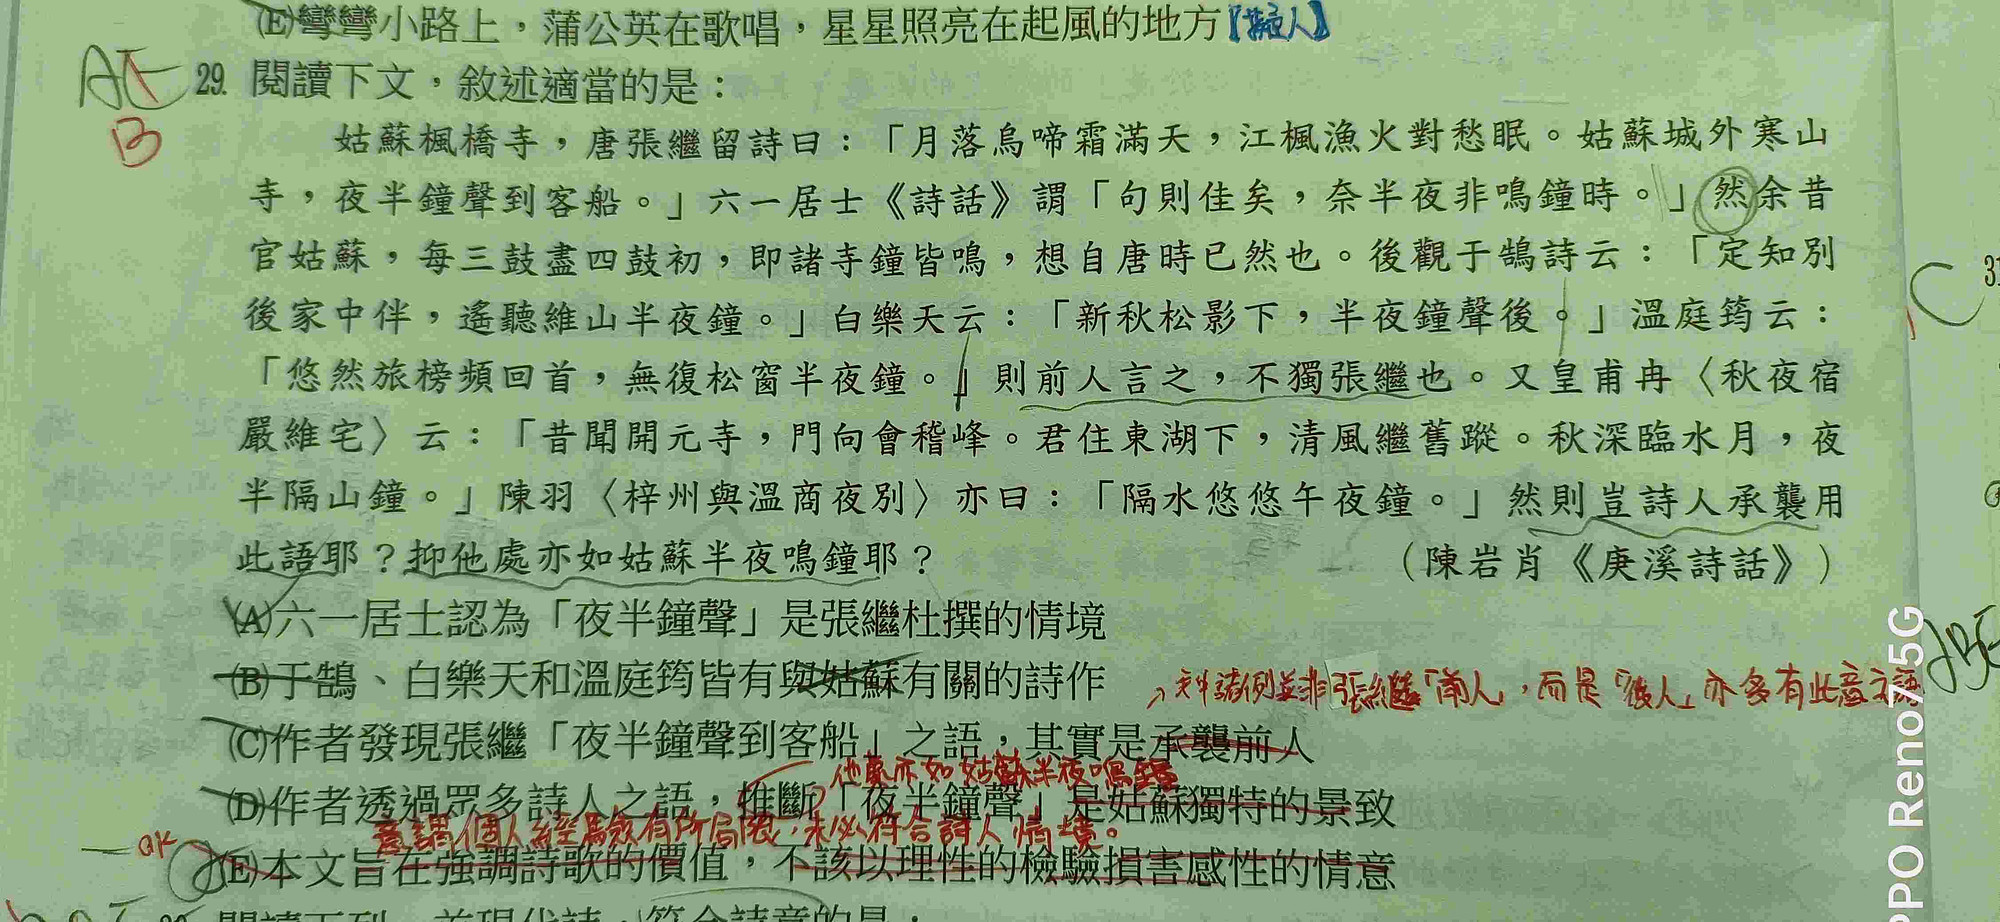 (E)彎彎小路上，蒲公英在歌唱，星星照亮在起風的地方【擬人】
AE
B
29. 閱讀下文，敘述適當的是：
姑蘇楓橋寺，唐張繼留詩曰：「月落烏啼霜滿天，江楓漁火對愁眠。姑蘇城外寒山
寺，夜半鐘聲到客船。」六一居士《詩話》謂「句則佳矣，奈半夜非鳴鐘時。」然余昔
官姑蘇，每三鼓盡四鼓初，即諸寺鐘皆鳴，想自唐時已然也。後觀于鵠詩云：「定知別
後家中伴，遙聽維山半夜鐘。」白樂天云：「新秋松影下，半夜鐘聲後。」溫庭筠云：
「悠然旅榜頻回首，無復松窗半夜鐘。」則前人言之，不獨張繼也。又皇甫冉〈秋夜宿
嚴維宅〉云：「昔聞開元寺，門向會稽峰。君住東湖下，清風繼舊蹤。秋深臨水月，夜
半隔山鐘。」陳羽〈梓州與溫商夜別〉亦曰：「隔水悠悠午夜鐘。」然則豈詩人承襲用
此語耶？抑他處亦如姑蘇半夜鳴鐘耶？
（陳岩肖《庚溪詩話》）
(A)六一居士認為「夜半鐘聲」是張繼杜撰的情境
(B)于鵠、白樂天和溫庭筠皆有與姑蘇有關的詩作
諸例並非張繼「前人」，而是「後人」亦多有此意之語
(C)作者發現張繼「夜半鐘聲到客船」之語，其實是承襲前人
他處亦如姑蘇半夜鳴鐘
(D)作者透過眾多詩人之語，推斷「夜半鐘聲」是姑蘇獨特的景致
意謂個人經驗有所侷限，未必符合詩人情境。
(E)本文旨在強調詩歌的價值，不該以理性的檢驗損害感性的情意
C
31
ABE
OPPO Reno7 5G